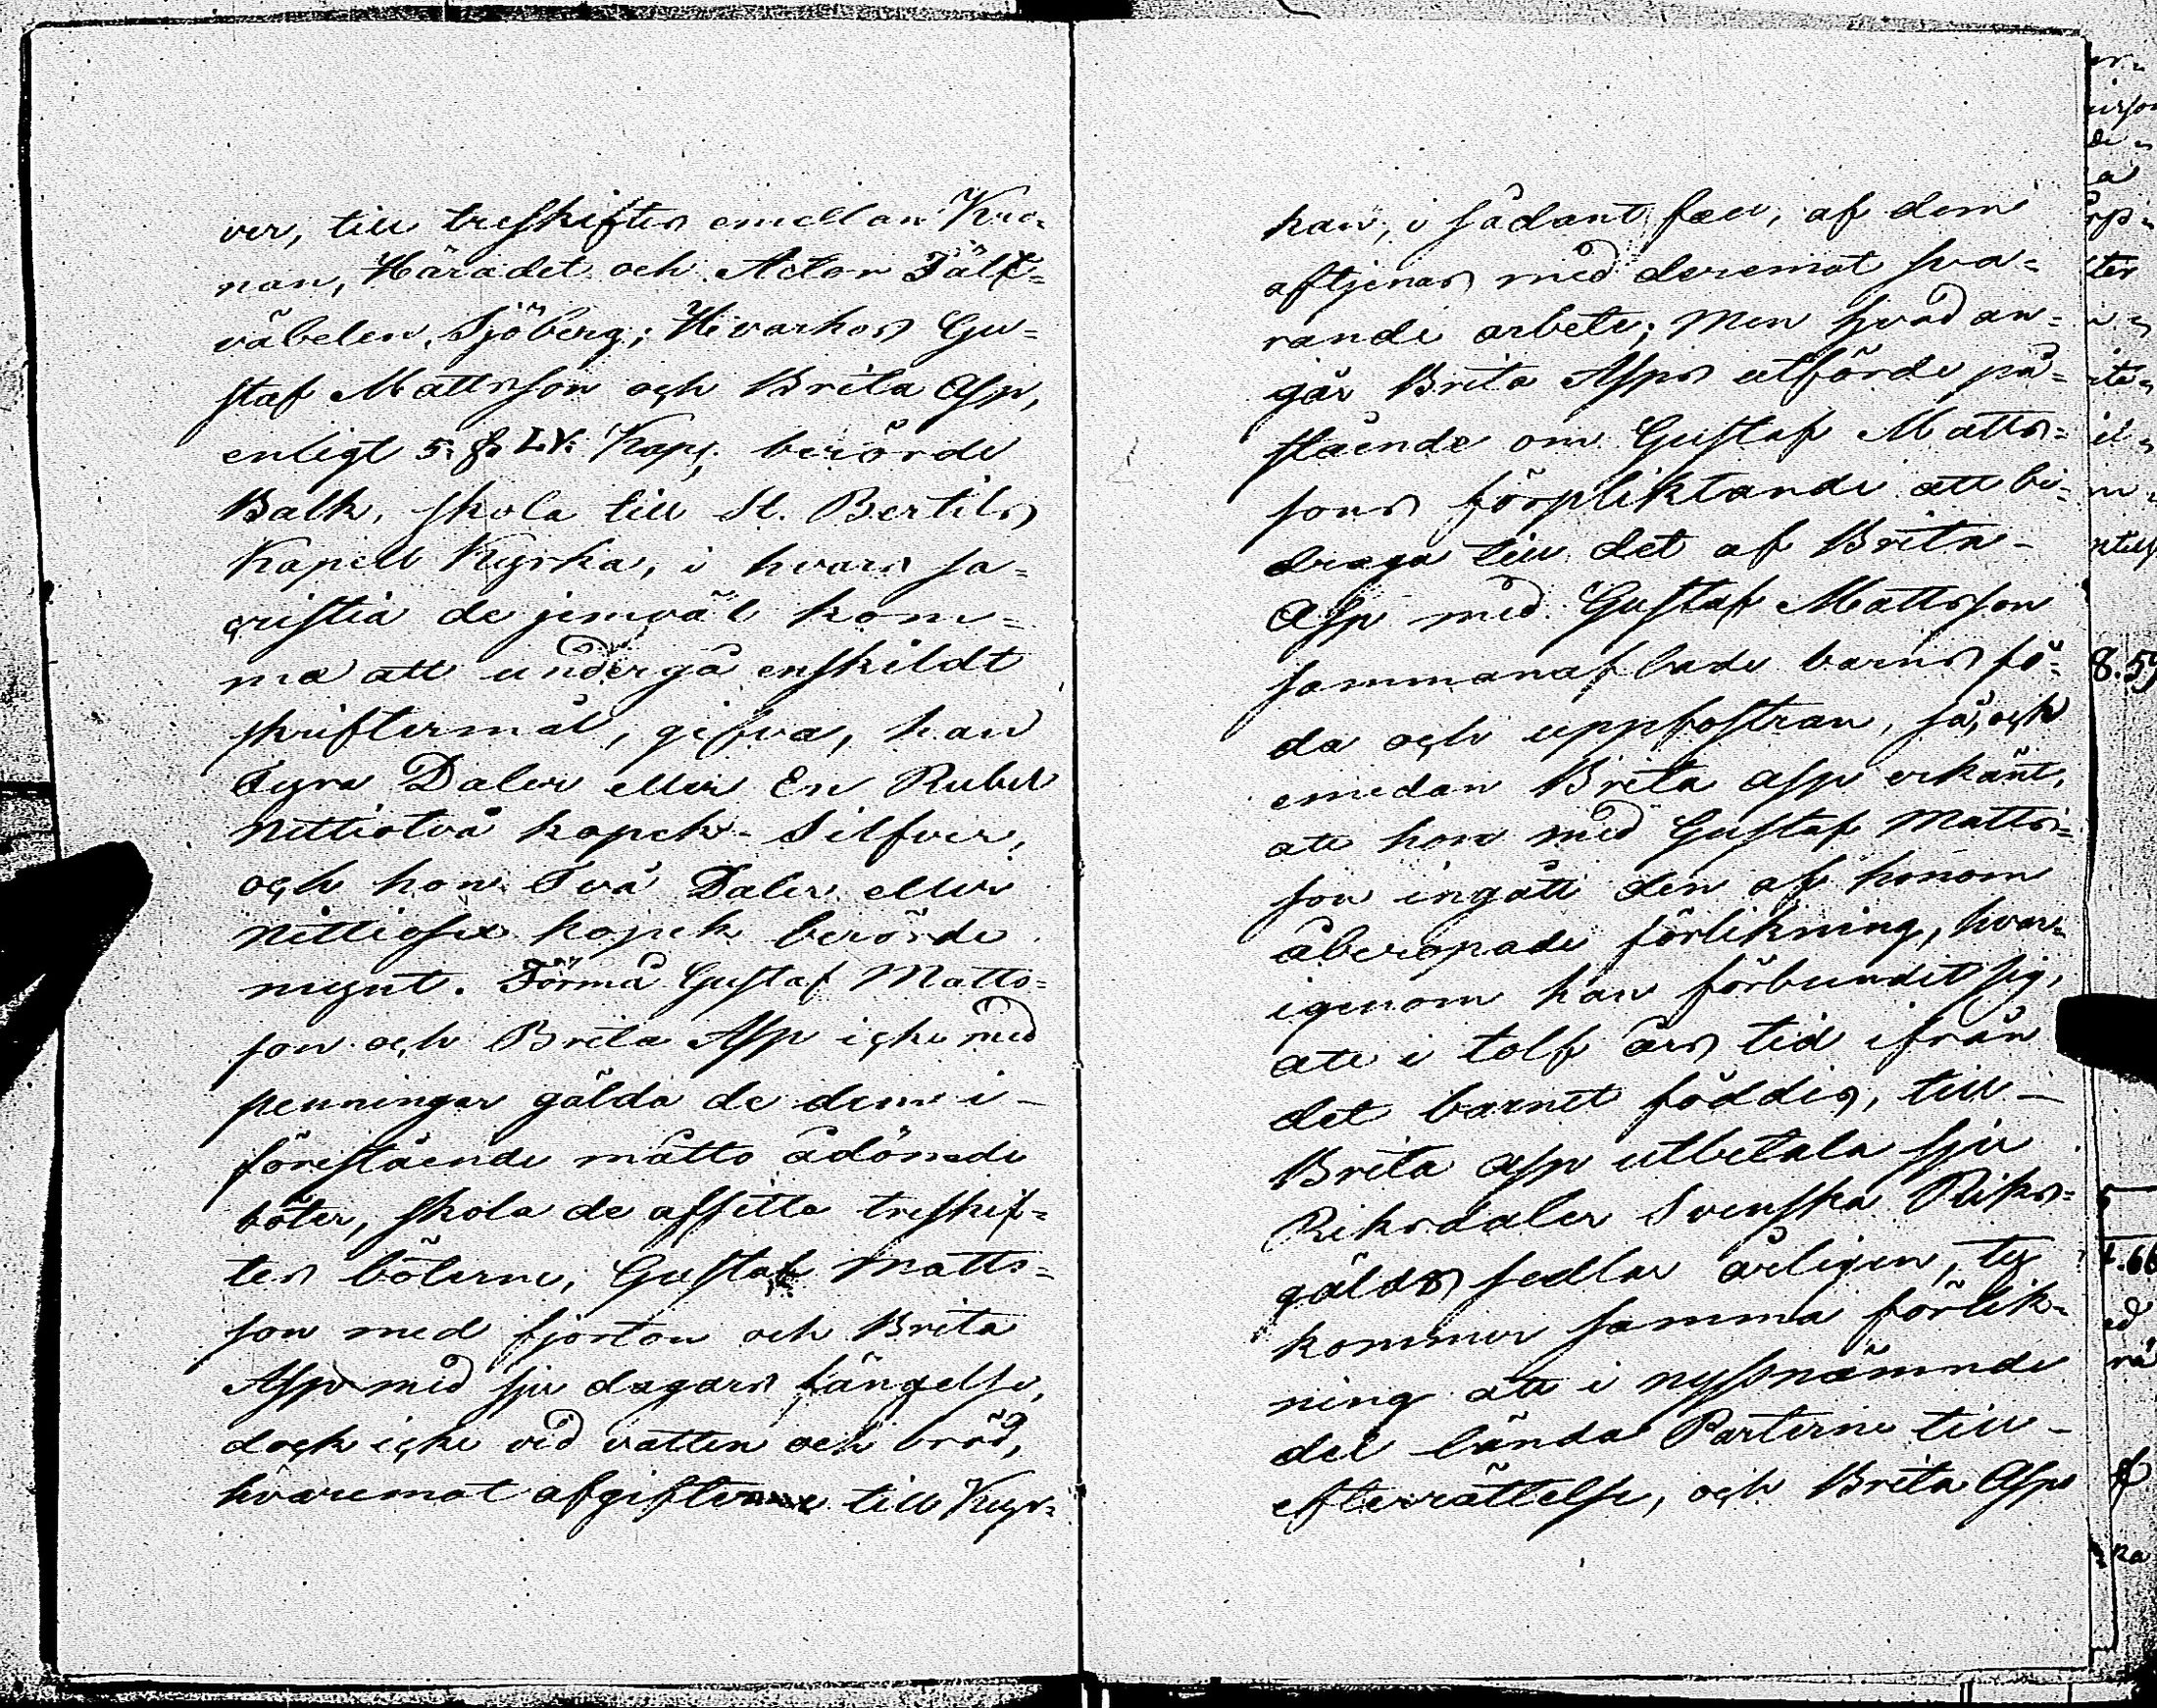 ver, till treskiftes emellan Kro-
nan, Häradet och Actor Fält-
väbelen Sjöberg; Hvarhos Gu-
staf Mattsson och Brita Asp,
enligt 5. §. LV. Kap. berörde
Balk, skola till St. Bertils
Kapell Kyrka, i hvars sa-
cristia de jemväl kom-
ma att undergå enskildt
skriftermål, gifva, han
Fyra Daler eller En Rubel
Nittiotvå kopek Silfver,
och hon Två Daler eller
Nittiosex kopek berörde
mynt. Förmå Gustaf Matts-
son och Brita Asp icke med
penningar gälda de dem i
förestående måtto ådömde
böter, skola de afsitta treskif-
tes böterne, Gustaf Matts-
son med fjorton och Brita
Asp med sju dagars fängelse,
dock icke vid vatten och bröd,
hvaremot afgifterne till Kyr-
kan, i sådant fall, af dem
aftjenas med deremot sva-
rande arbete; Men hvad an-
går Brita Asps utförde på-
stående om Gustaf Matts-
sons förpliktande att bi-
draga till det af Brita
Asp med Gustaf Mattsson
sammanaflade barns fö-
da och uppfostran, så, och
emedan Brita Asp erkänt,
att hon med Gustaf Matts-
son ingått den af honom
åberopade förlikning, hvar-
igenom han förbundit sig,
att i tolf års tid ifrån
det barnet föddes, till
Brita Asp utbetala sju
Riksdaler Svenska Riks-
gälds sedlar årligen, ty
kommer samma förlik-
ning att i nyssnämnde
del lända Parterne till
efterrättelse, och Brita Asp
8.59
4.66